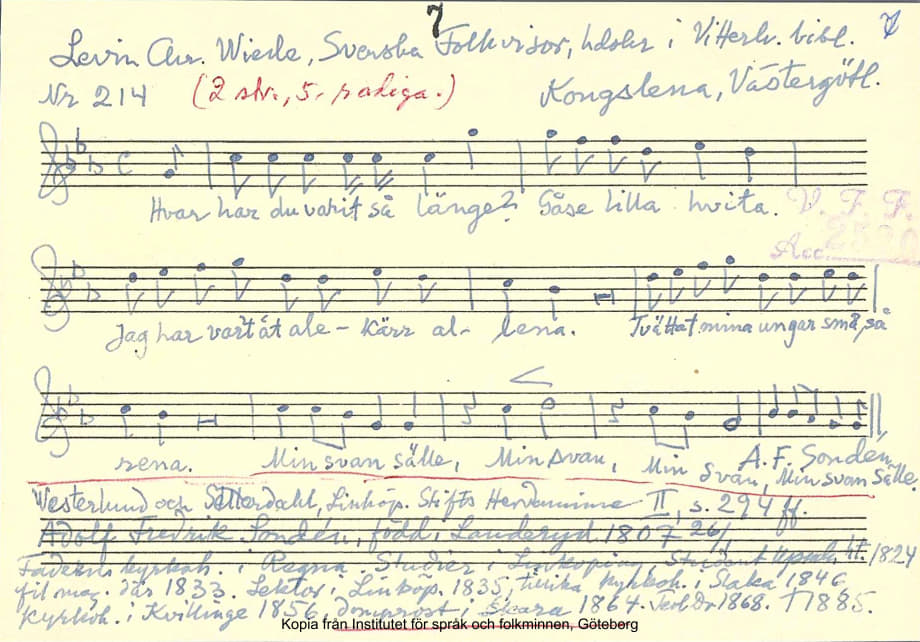 7
7
Levin Chr. Wiede, Svenska Folkvisor, hdskr i Vitterh. bibl.
Nr 214 (2 str., 5, radiga.) Kongslena, Västergötl.
Hvar har du varit så länge? Gåse lilla hvita.
V. F. F.
Acc. 2520
Jag har vart åt ale-kärr al-lena. Tvättat mina ungar små, så
rena. Min svan sälle, Min svan, Min svan, Min svan sälle.
A. F. Sondén
Westerlund och Setterdahl, Linköp. Stifts Herdaminne II, s. 294 ff.
Adolf Fredrik Sondén, född i Landeryd 1807 26/1
Fadern kyrkoh. i Regna. Studier i Linköping Student Upsala ht. 1824
fil mag. där 1833. Lektor i Linköp. 1835, tillika kyrkoh. i Slaka 1846
Kyrkoh. i Kvillinge 1856, domprost i Skara 1864. Teol Dr 1868. †1885.
Kopia från Institutet för språk och folkminnen, Göteborg